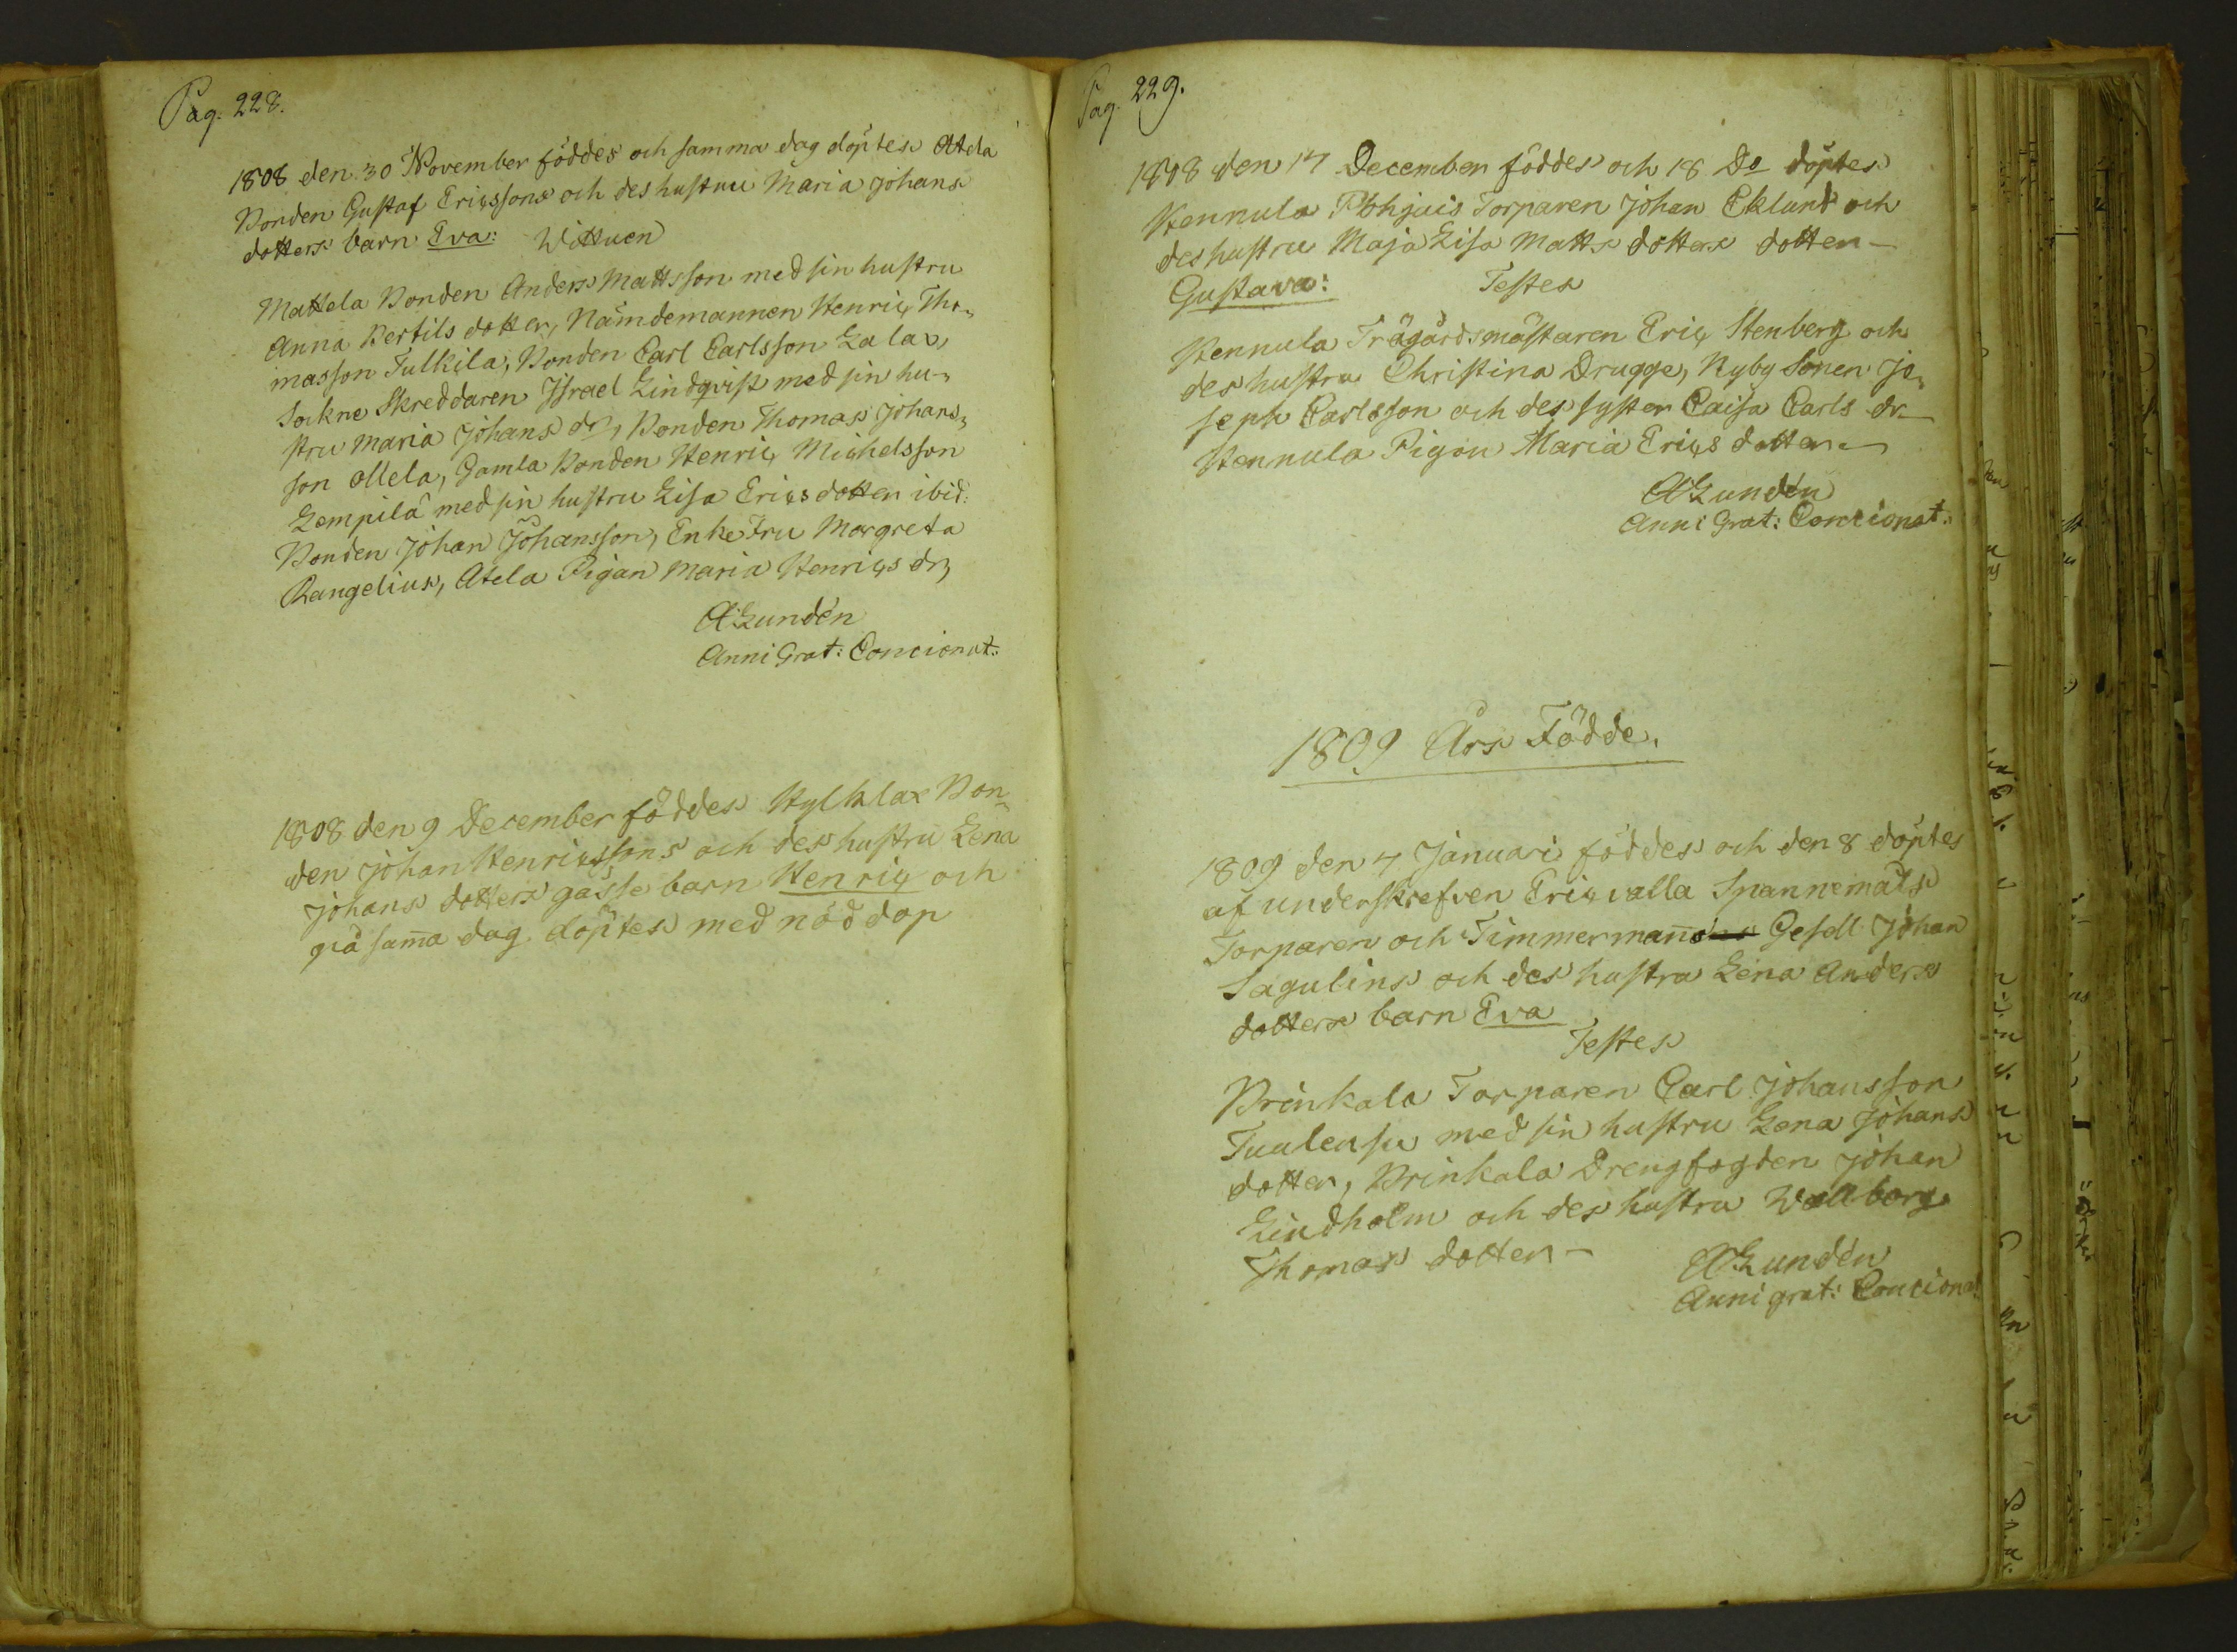 Pag. 228.
1808 den 30 November föddes och samma dag döptes Atela
Bonden Gustaf Ericssons och des hustru Maria Johans
dotters barn Eva: Wittnen
Mattela Bonden Anders Mattsson med sin hustru
Anna Bertils dotter, Nämdemannen Henric Tho-
masson Tulkila, Bonden Carl Carlsson Lalax,
Sockne Skreddaren Israel Lindqvist med sin hu-
stru Maria Johans dr, Bonden Thomas Johans-
son Mela, Gamla Bonden Henric Michelsson
Lempilä med sin hustru Lisa Erics dotter ibid:
Bonden Johan Johansson, Enke Fru Margreta
Rangelius, Atela Pigan Maria Henrics dr,
A Lundén
Anni Grat: Concionat:
1808 den 9 December föddes Hylklax Bon-
den Johan Henricssons och des hustru Lena
Johans dotters gosse barn Henric och
på sama dag döptes med nöd dop
Pag. 229.
1808 den 17 December föddes och 18 Do döptes
Hennula Pohjais Torparen Johan Eklund och
des hustru Maja Lisa Matts dotters dotter -
Gustava: Testes
Hennula Trägårdsmästaren Eric Stenberg och
des hustru Christina Drugge, Nyby Sonen Jo-
seph Carlsson och des syster Caisa Carls dr
Hennula Pigan Maria Erics dotter
A Lundén
Anni Grat: Concionat:
1809 Års Födde.
1809 den 7 Januari föddes och den 8 döptes
af underskrefven Ericvalla Spannemäls
Torparen och Timmermans Gesell Johan
Sagulins och des hustru Lena Anders
dotters barn Eva
Testes
Brinkala Torparen Carl Johansson
Tuulensu med sin hustru Lena Johans
dotter, Brinkala Drengfogden Johan
Lindholm och des hustru Wallborg
Thomas dotter -
A Lundén
Anni grat: Concionat